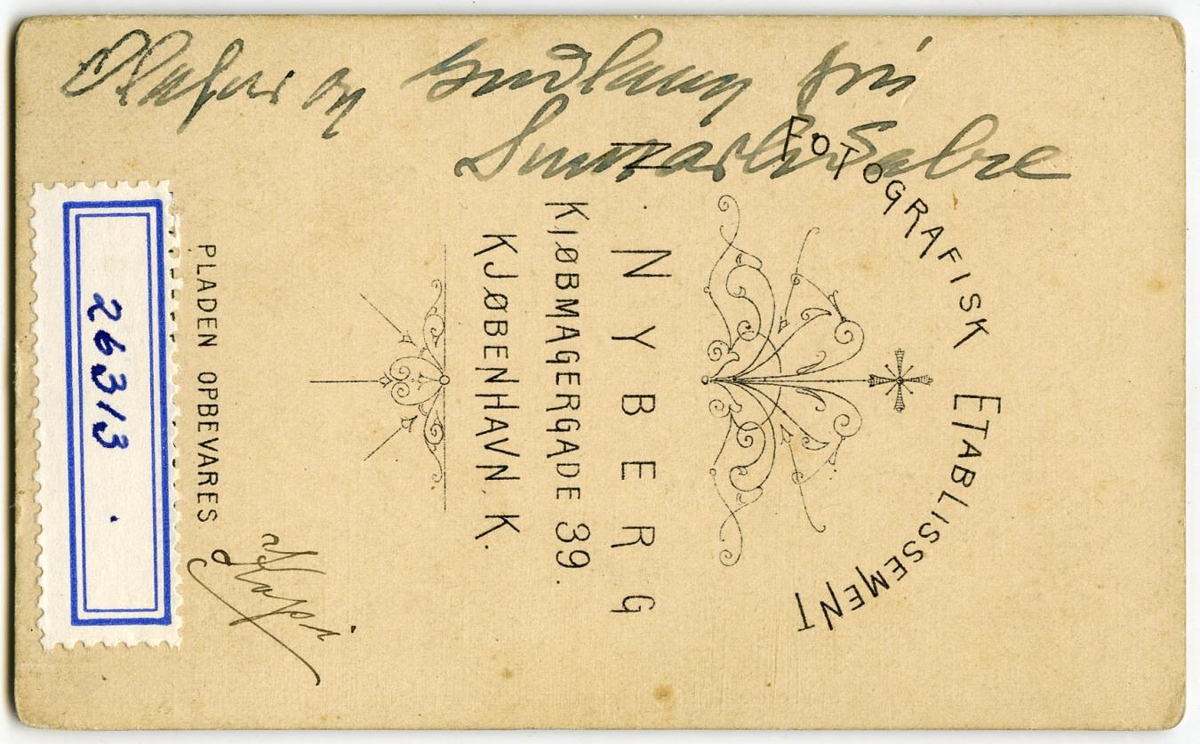 Olafur og Gudlaug frá
FOTOGRAFISK ETABLISSEMENT
NYBERG
KJØBMAGERGADE 39.
KJØBENHAVN. K.
PLADEN OPBEVARES
26313.